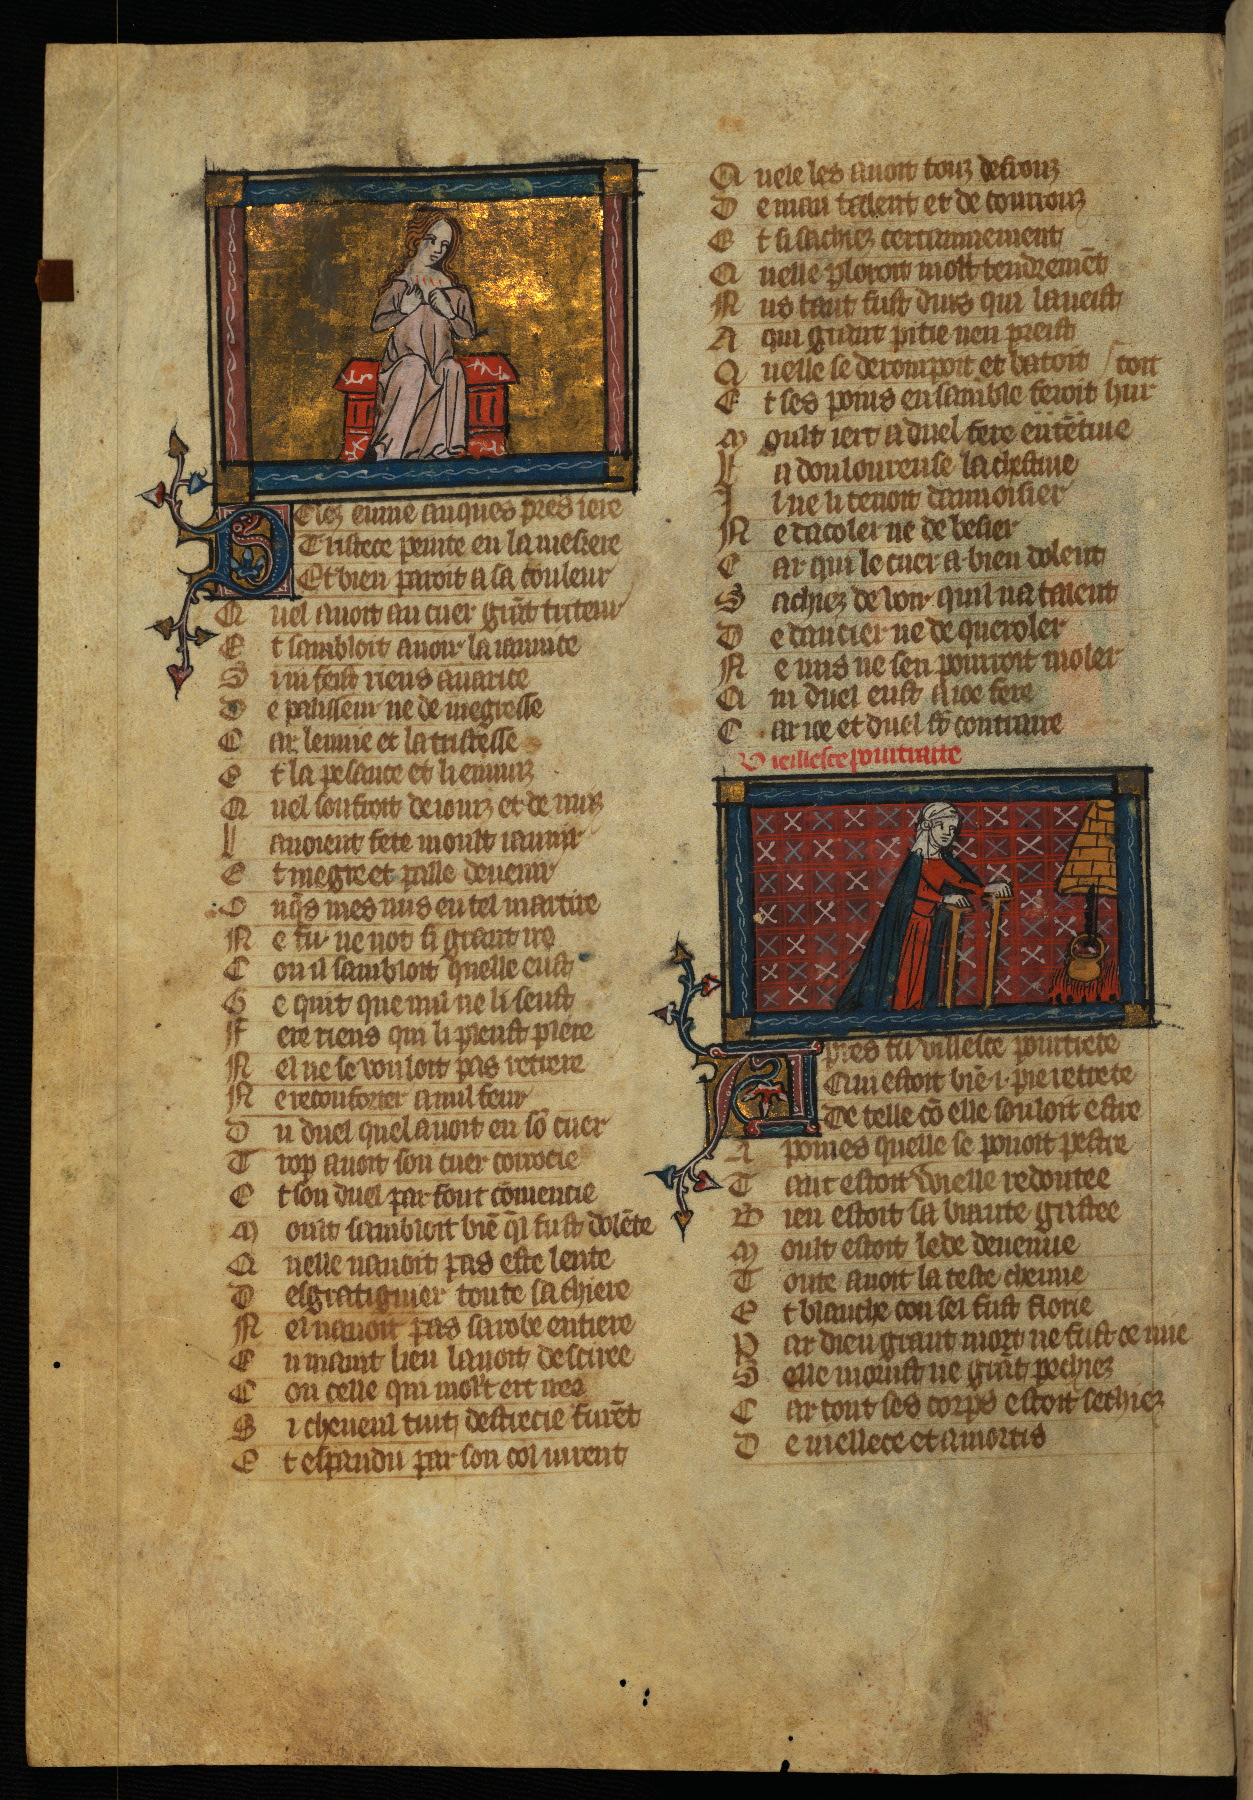 Delez envie auques pres iere
Tristece peinte en la mesiere
Et bien paroit a sa couleur
Quel avoit au cuer grāt tristeur
Et sambloit avoir la iaunice
Si ni feist riens avarice
De palisseur ne de megresse
Car lenuie et la tristesse
Et la pesance et li ennuiz
Quel soufroit de iourz et de nuis
Lavoient fete moult iaunir
Et megre et palle devenir
Onq̄s mes nus en tel martire
Ne fu ne not si grant ire
Con il sambloit quelle eust
Ge quit que nul ne li seust
Fere riens qui li pleust plere
Nel ne se vouloit pas retrere
Ne reconforter a nul feur
Du duel quel avoit en sō cuer
Trop avoit son cuer corrocie
Et son duel parfont cōmencie
Moult sambloit biē q̄l fust dolēte
Quelle navoit pas este lente
Desgratigner toute sa chiere
Nel navoit pas sa robe entiere
En maint lieu lavoit desciree
Con celle qui mol't ert iree
Si cheveul tuit destrecie furēt
Et espandu par son col iurent
Quele les avoit touz desrouz
De mau talent et de courrouz
Et si sachiez certainnement
Quelle ploroit molt tendremēt
Nus tant fust durs qui la veist
A qui grant pitie nen preist
Quelle se derompoit et batoit
Et ses poins ensamble feroit hur toit
Moult iert a duel fere ententive
La douloureuse la chestive
Il ne li tenoit damoisier
Ne dacoler ne de besier
Car qui le cuer a bien dolent
Sachiez de voir quil na talent
De dancier ne de queroler
Ne nus ne sen pourroit moler
Qui duel eust a ioe fere
Car ioe et duel sōt contraire
Vieillesce pourtraite
Apres fu villesce pourtrete
Qui estoit biē .i. pie retrete
De telle cō elle souloit estre
A poines quelle se pouoit pestre
Tant estoit vielle redoutee
Bien estoit sa biaute gastee
Moult estoit lede devenue
Toute avoit la teste chenue
Et blanche con sel fust florie
Par dieu grant mort ne fust ce mie
Selle morust ne grāt pechiez
Car tout ses corps estoit sechiez
De viellece et amortis